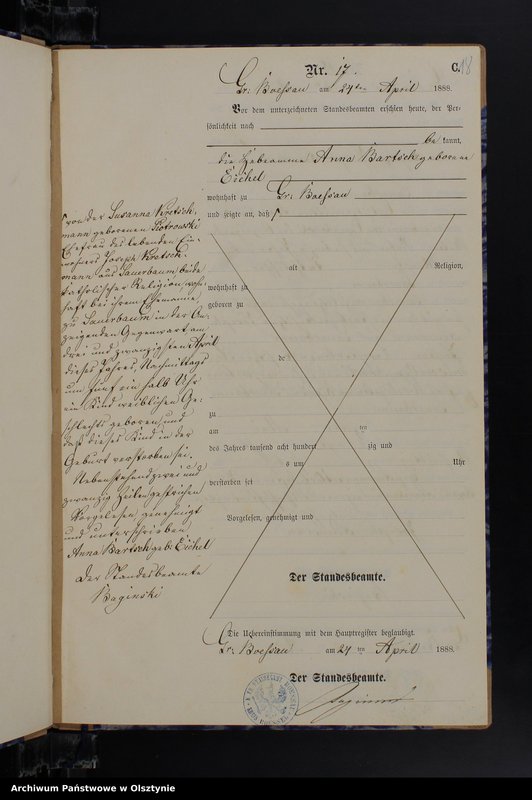 Nr. 17.
C.
18
Gr. Boessau am 24ten April 1888.
Vor dem unterzeichneten Standesbeamten erschien heute, der Per-
sönlichkeit nach
be kannt,
die Hebeamme Anna Bartsch geborene
Eichel
wohnhaft zu Gr. Boessau
und zeigte an, daß
von der Susanna Kretsch,
mann geborenen Piotrowski
Ehefrau des lebenden Ein-
wohners Joseph Kretsch-
mann aus Lauerbaum beide
katholischer Religion, wohn
haft bei ihrem Ehemanne,
zu Lauerbaum in der An-
zeigenden Gegenwart am
drei und zwanzigsten April
dieses Jahres, Nachmittags
um fünf ein halb Uhr
ein Kind weiblichen Ge-
schlechts geboren und
daß dieses Kind in der
Geburt verstorben sei.
Nebenstehend zwei und
zwanzig Zeilen gestrichen
Vorgelesen, genehmigt
und unterschrieben
Anna Bartsch geb. Eichel
Der Standesbeamte
Baginski
alt
Religion,
wohnhaft zu
geboren zu
de
zu
am
ten
des Jahres tausend acht hundert
zig und
s um
Uhr
verstorben sei
Vorgelesen, genehmigt und
Der Standesbeamte.
Die Uebereinstimmung mit dem Hauptregister beglaubigt.
Gr. Boessau am 24 ten April 1888.
Der Standesbeamte.
Baginski
Archiwum Państwowe w Olsztynie